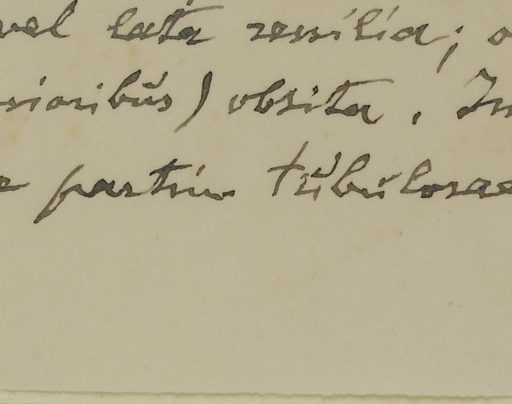 vel lata sessilia; o
rioribus) obsita. In
e partim tubulosae